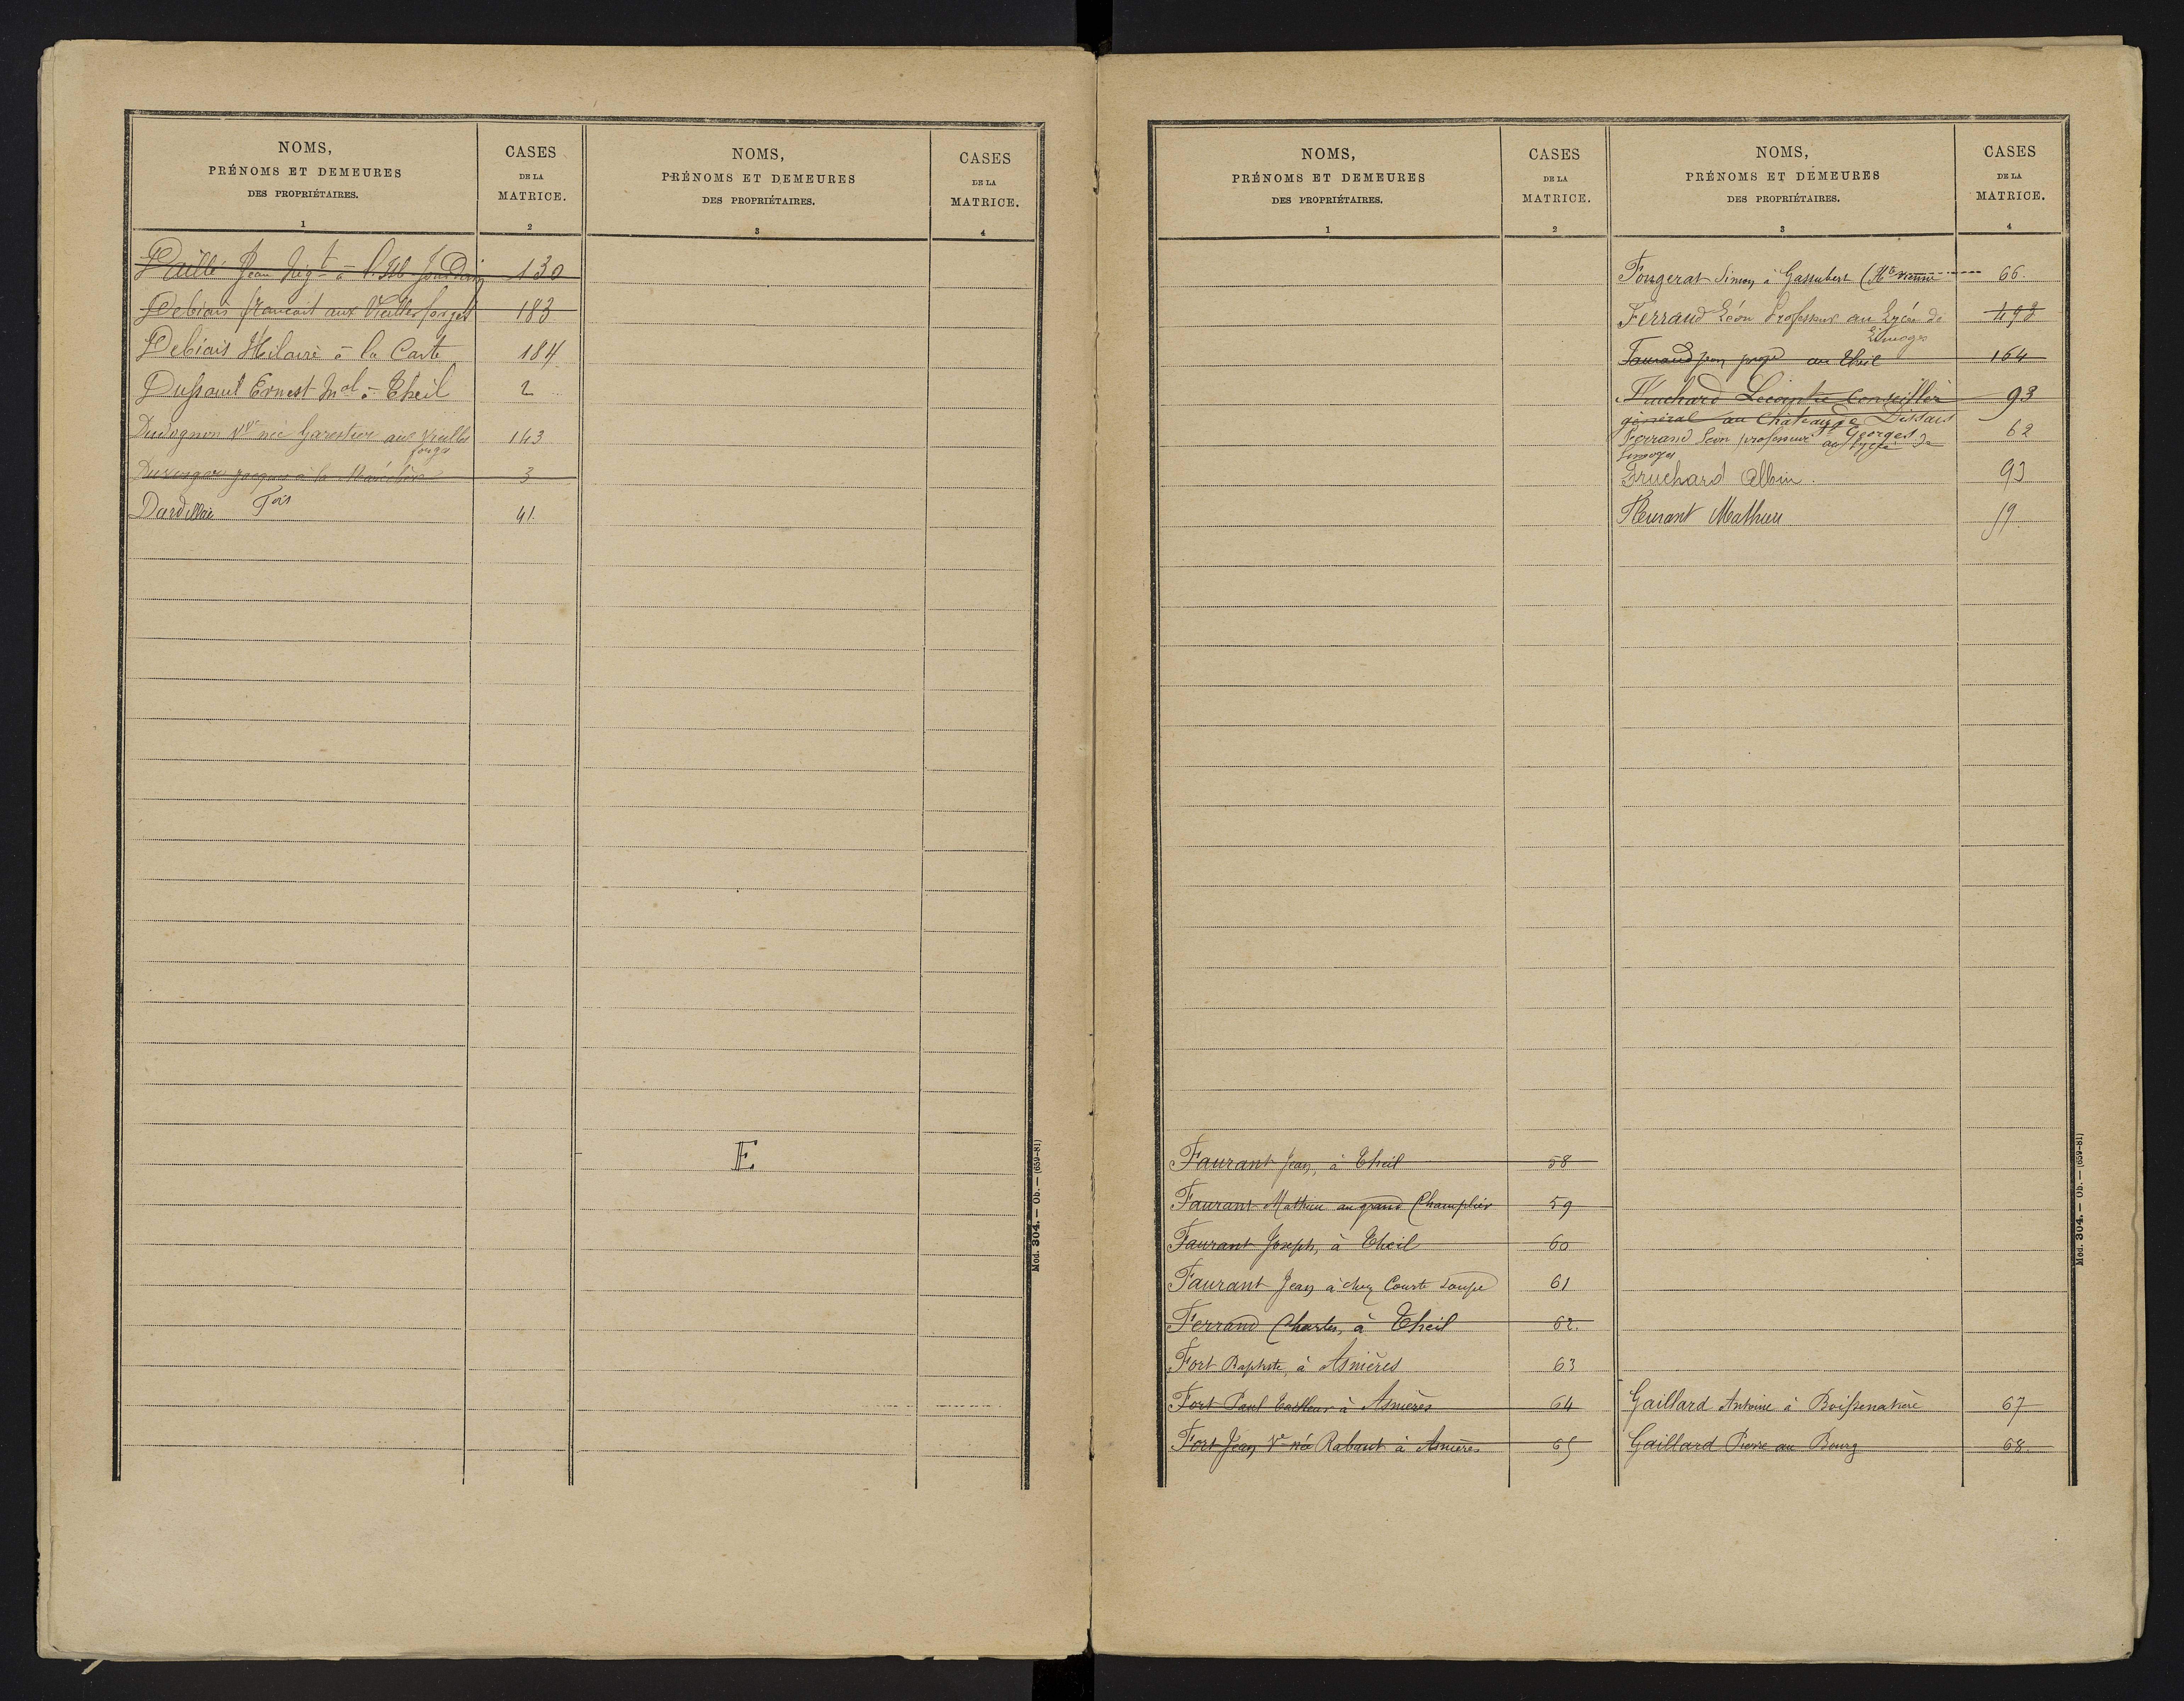 NOMS,
PRÉNOMS ET DEMEURES
DES PROPRIÉTAIRES.
1
CASES
DE LA
MATRICE.
2
Daillé Jean Nég.t à l'Isle Jourdain 130
Debiais François aux Vieilles forges 183
Debiais Hilaire à la Carte 184
Dussout Ernest Md à Theil 2
Dudognon Vve née Garestier aux Vieilles 143
forges
à la 3
Dardillac Fois 41.
NOMS,
PRÉNOMS ET DEMEURES
DES PROPRIÉTAIRES.
3
CASES
DE LA
MATRICE.
4
E
Mod. 304. — Ob. — (659-81)
NOMS,
PRÉNOMS ET DEMEURES
DES PROPRIÉTAIRES.
1
CASES
DE LA
MATRICE.
2
Faurant Jean, à Theil 58
Faurant Mathieu au grand Champlier 59
Faurant Joseph, à Theil 60
Faurant Jean à chez Courte Soupe 61
Ferrand Charles, à Theil 62.
Fort Baptiste, à Asnières 63
Fort Paul tailleur à Asnières 64
Fort Jean Ve née Rabaut à Asnières 65
NOMS,
PRÉNOMS ET DEMEURES
DES PROPRIÉTAIRES.
3
CASES
DE LA
MATRICE.
4
Fougerat Simon à Gassubert (Hte Vienne 66.
Ferrand Léon Professeur au Lycée de 198
Limoges
Faurand Jean au Theil 164
Fruchard Lecointre Conseiller 93
général au Château de Dissais
Ferrand Léon professeur au Lycée de 62
Georges
Limoges
Fruchard Albin. 93
Fleurant Mathieu 59.
Gaillard Antoine à Boissenatière 67
Gaillard Pierre au Bourg 68.
Mod. 304. — Ob. — (659-81)